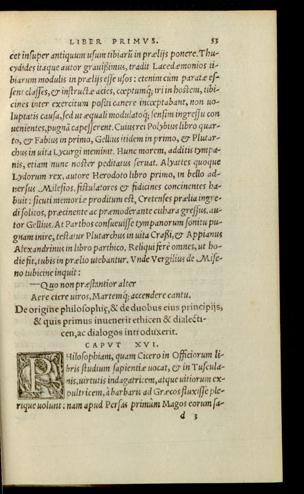 LIBER PRIMVS. 53
cet insuper antiquum usum tibiarũ in prælijs ponere. Thu-
cydides itaque autor grauissimus, tradit Lacedæmonios ti-
biarum modulis in prælijs esse usos: etenim cùm paratæ es-
sent classes, & instructæ acies, cœptumq́; iri in hostem, tibi-
cines inter exercitum positi canere inceptabant, non uo-
luptatis causa, sed ut æquali modulatoq́; sensim ingressu con
uenientes, pugnã capesserent. Cuius rei Polybius libro quar-
to, & Fabius in primo, Gellius itidem in primo, & Plutar-
chus in uita Lycurgi meminit. Hunc morem, additis tympa-
nis, etiam nunc noster peditatus seruat. Alyattes quoque
Lydorum rex, autore Herodoto libro primo, in bello ad-
uersus Milesios, fistulatores & fidicines concinentes ha-
buit: sicuti memoriæ proditum est, Cretenses prælia ingre-
di solitos, præcinente ac præmoderante cithara gressus, au-
tor Gellius. At Parthos consueuisse tympanorum sonitu pu-
gnam inire, testatur Plutarchus in uita Crassi, & Appianus
Alexandrinus in libro parthico. Reliqui ferè omnes, ut ho-
die fit, tubis in prælio utebantur. Vnde Vergilius de Mise-
no tubicine inquit:
—Quo non præstantior alter
Aere ciere uiros, Martemq́; accendere cantu.
De origine philosophiæ, & de duobus eius principijs,
& quis primus inuenerit ethicen & dialecti-
cen, ac dialogos introduxerit.
CAPVT XVI.
PHilosophiam, quam Cicero in Officiorum li-
bris studium sapientiæ uocat, & in Tuscula-
nis, uirtutis indagatricem, atque uitiorum ex-
pultricem, à barbaris ad Græcos fluxisse ple-
rique uolunt: nam apud Persas primùm Magos eorum sa-
d 3